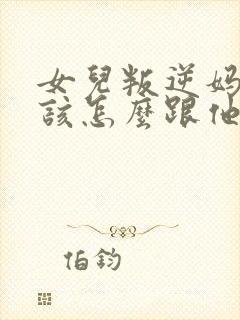 女兒叛逆媽
該怎麼跟他
伯鈞